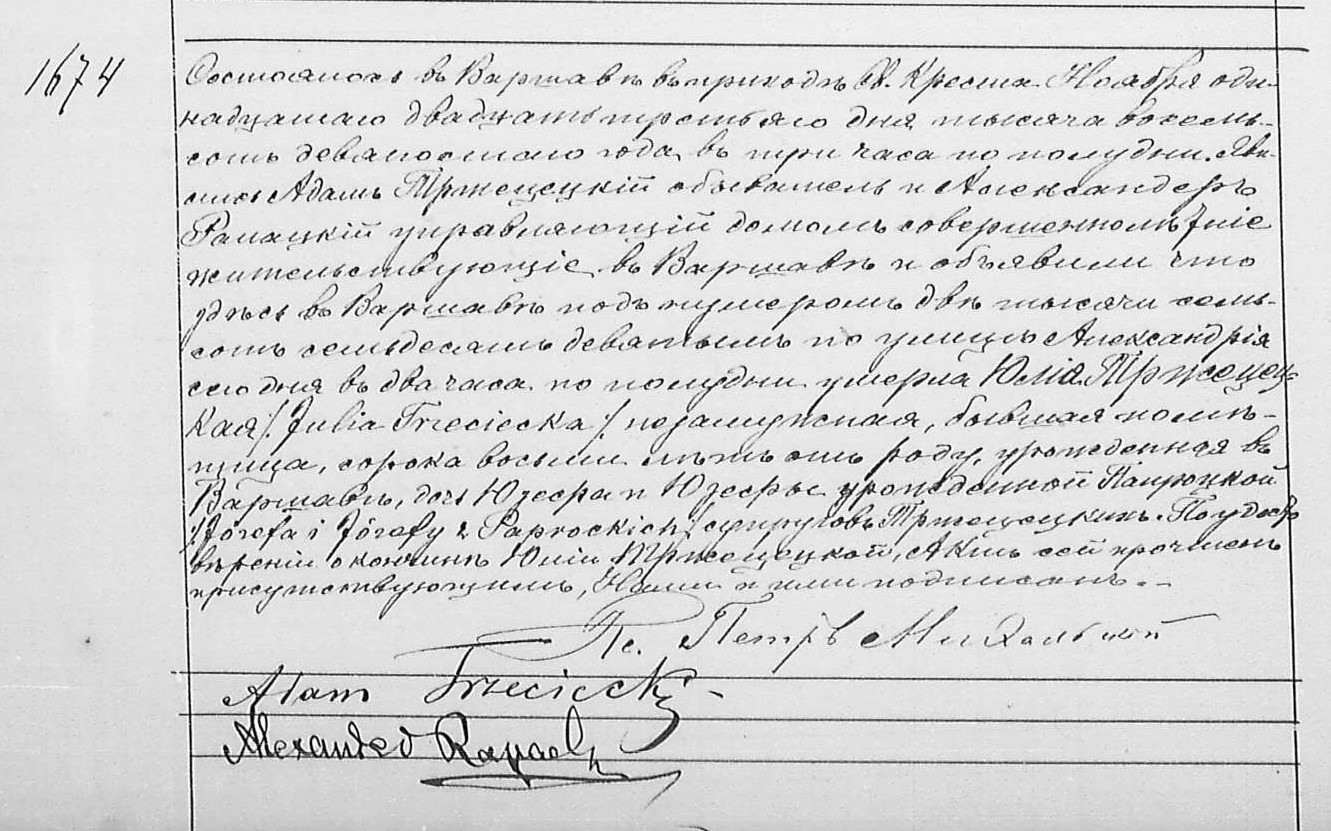 1674
Состоялось въ Варшавѣ въ приходѣ Св. Креста Ноября оди-
надцатаго двадцать третьяго дня тысяча восемь-
сотъ девяностаго года, въ три часа по полудни. Яви-
лись Адамъ Тржецецкій обыватель и Александеръ
Рапацкій управляющій домомъ совершеннолѣтніе
жительствующіе въ Варшавѣ и объявили что
здѣсь въ Варшавѣ подъ нумеромъ двѣ тысячи семь-
сотъ семьдесятъ девятымъ по улицѣ Александрія
сего дня въ два часа по полудни умерла Юлія Тржецец-
кая /: Julia Trzeciecka :/ незамужная, бывшая помѣ-
щица, сорока восьми лѣтъ отъ роду, урожденная въ
Варшавѣ, дочь Юзефа и Юзефы урожденной Папроцкой
/: Józefa i Józefy z Paprockich :/ супруговъ Тржецецкихъ. По удосто
вѣреніи о кончинѣ Юліи Тржецецкой, Актъ сей прочтенъ
присутствующимъ, Нами и ими подписанъ.
Кс. Петръ Михальской
Adam Trzeciecki
Alexander Rapacki